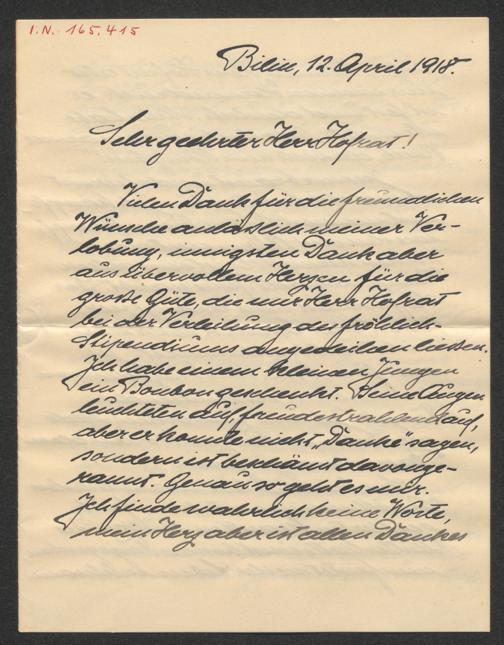 I.N. 165.415
Bilin, 12. April 1918.
Sehr geehrter Herr Hofrat!
Vielen Dank für die freundlichen
Wünsche anlässlich meiner Ver-
lobung, innigsten Dank aber
aus übervollem Herzen für die
große Güte, die mir Herr Hofrat
bei der Verleihung des Fröhlich-
Stipendiums angedeihen liessen.
Ich habe einem kleinen Jungen
ein Bonbon geschenkt. Seine Augen
leuchteten auf, freudestrahlend auf,
aber er konnte nicht „Danke" sagen,
sondern ist beschämt davonge-
rannt. Genau so geht es mir.
Ich finde wahrlich keine Worte,
mein Herz aber ist allen Dankes